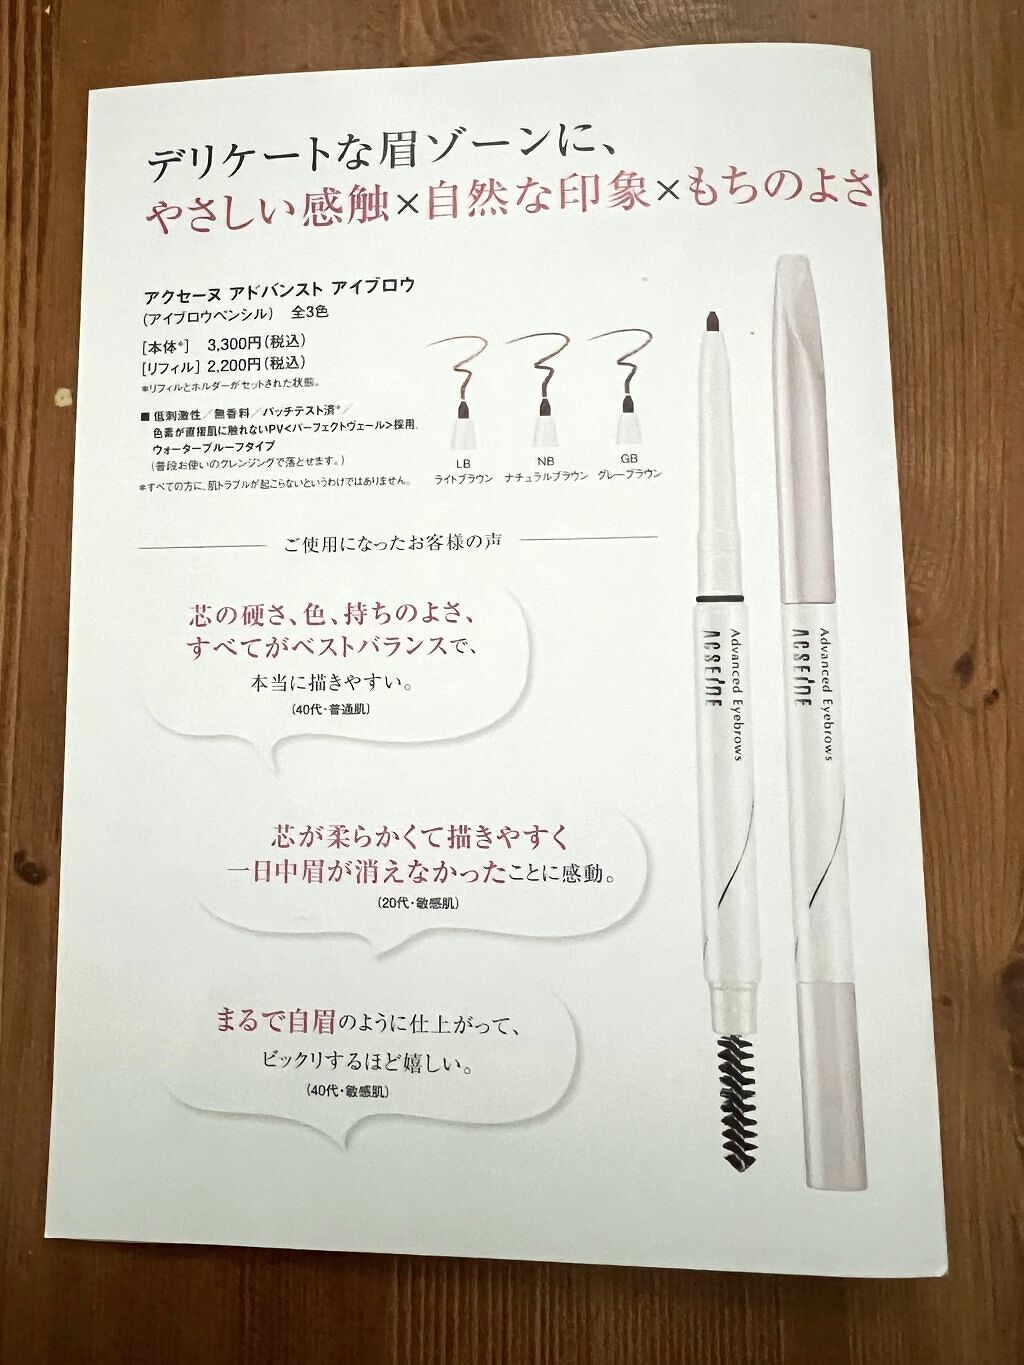 デリケートな眉ゾーンに、
やさしい感触×自然な印象×もちのよさ
アクセーヌ アドバンスト アイブロウ
(アイブロウペンシル) 全3色
[本体*] 3,300円(税込)
[リフィル] 2,200円(税込)
*リフィルとホルダーがセットされた状態。
■ 低刺激性/無香料/パッチテスト済*/
色素が直接肌に触れないPV<パーフェクトヴェール>採用
ウォータープルーフタイプ
(普段お使いのクレンジングで落とせます。)
*すべての方に、肌トラブルが起こらないというわけではありません。
LB
ライトブラウン
NB
ナチュラルブラウン
GB
グレーブラウン
ご使用になったお客様の声
芯の硬さ、色、持ちのよさ、
すべてがベストバランスで、
本当に描きやすい。
(40代・普通肌)
芯が柔らかくて描きやすく
一日中眉が消えなかったことに感動。
(20代・敏感肌)
まるで自眉のように仕上がって、
ビックリするほど嬉しい。
(40代・敏感肌)
Advanced Eyebrows
ACSEINE
Advanced Eyebrows
ACSEINE